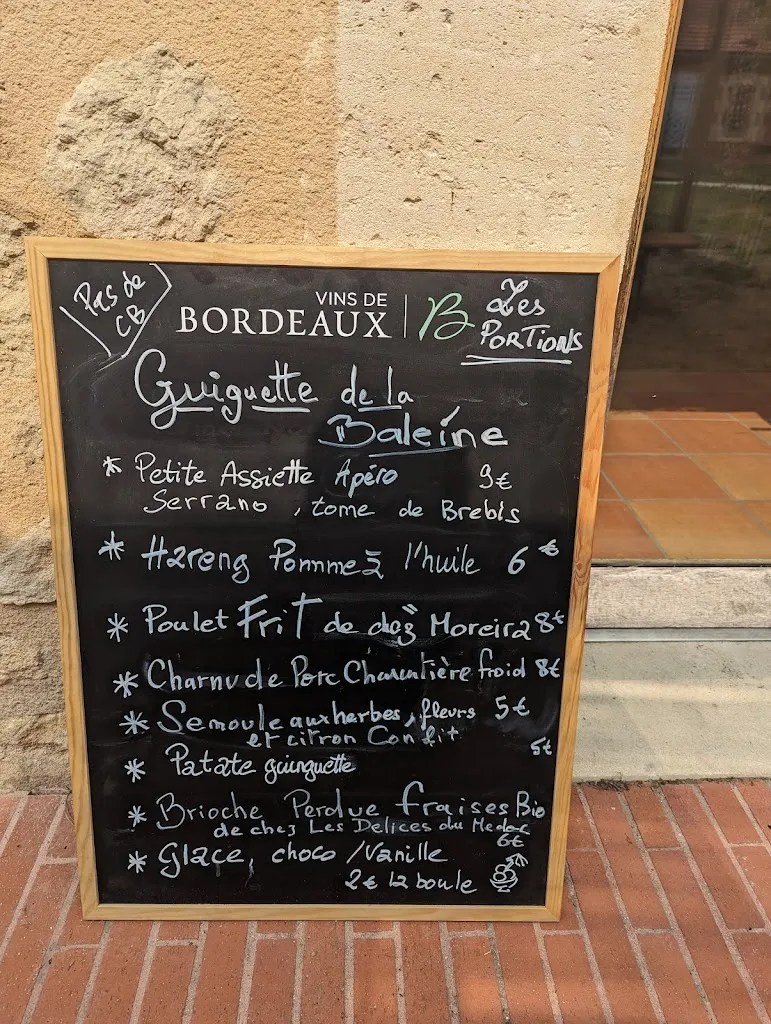 Pas de
CB
VINS DE
BORDEAUX
B
Les
PORTIONS
Guiguette de la
Baleine
* Petite Assiette Apéro 9€
Serrano, tome de Brebis
* Hareng Pomme à l'huile 6€
* Poulet FriT de chez Moreira 8€
* Charnu de Porc Charentière froid 8€
* Semoule aux herbes, fleurs 5€
et citron Confit
* Patate guinguette 5€
* Brioche Perdue fraises Bio
de chez Les Delices du Medoc
6€
* Glace, choco / Vanille
2€ la boule